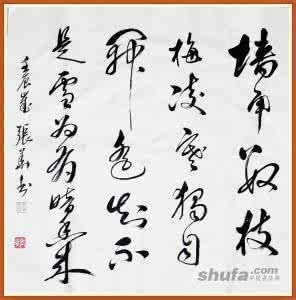 墙角数枝
梅凌寒独自
開遥知不
是雪为有暗香来
壬辰岁 張书
shufa.com